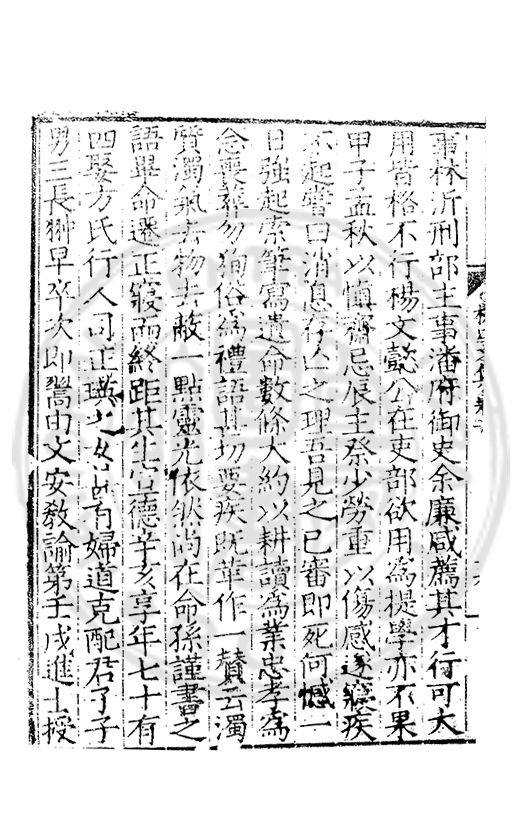 事林沂刑部主事潘府御史余廉咸薦其才行可大
用皆格不行楊文懿公在吏部欲用為提學亦不果
甲子孟秋以慎齋忌辰主祭少勞重以傷感遂寢疾
不起嘗曰消息存亡之理吾見之已審即死何憾一
日強起索筆寫遺命數條大約以耕讀為業忠孝為
念喪葬勿狥俗為禮語甚切要疾既革作一贊云濁
質濁氣去物去蔽一點靈光依然尚在命孫謹書之
語畢命遷正寢而終距其生宣德辛亥享年七十有
四娶方氏行人司正瑛之女有婦道克配君子子
男三長翀早卒次即翯由文安教諭第壬戌進士授